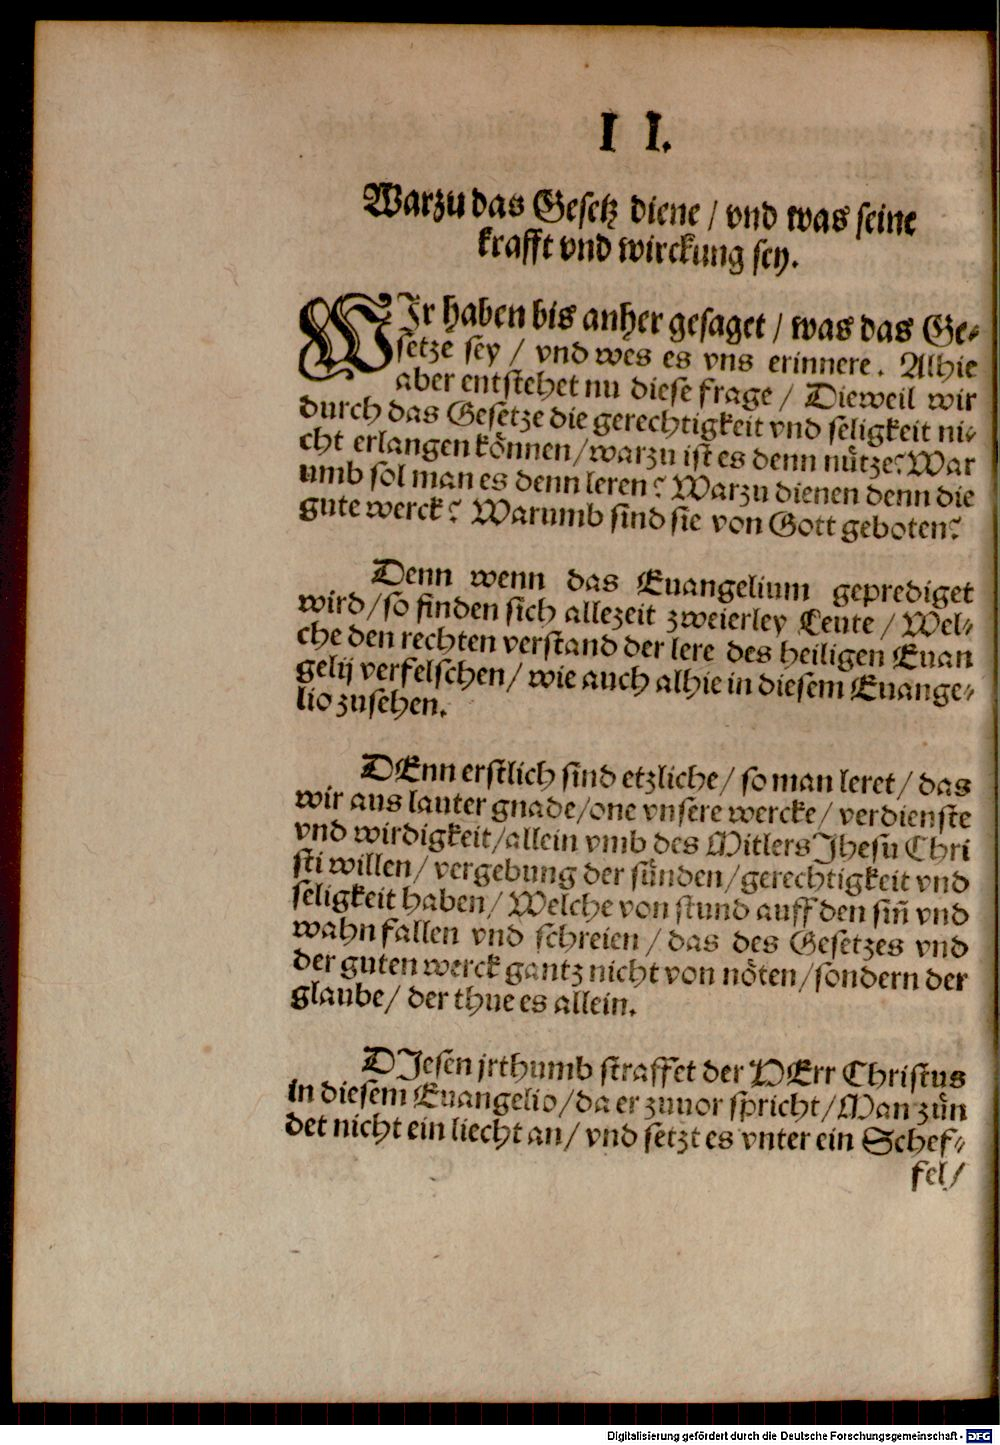 I I.
Warzu das Gesetz diene / vnd was seine
krafft vnd wirckung sey.
WIr haben bis anher gesaget / was das Ge-
setze sey / vnd wes es vns erinnere. Alhie
aber entstehet nu diese frage / Dieweil wir
durch das Gesetze die gerechtigkeit vnd seligkeit ni-
cht erlangen können / warzu ist es denn nütze? War
umb sol man es denn leren? Warzu dienen denn die
gute werck? Warumb sind sie von Gott geboten?
Denn wenn das Euangelium geprediget
wird / so finden sich allezeit zweierley Leute / Wel-
che den rechten verstand der lere des heiligen Euan
gelij verfelschen / wie auch alhie in diesem Euange-
lio zusehen.
DEnn erstlich sind etzliche / so man leret / das
wir aus lauter gnade / one vnsere wercke / verdienste
vnd wirdigkeit / allein vmb des Mitlers Jhesu Chri
sti willen / vergebung der sünden / gerechtigkeit vnd
seligkeit haben / Welche von stund auff den sin̄ vnd
wahn fallen vnd schreien / das des Gesetzes vnd
der guten werck gantz nicht von nöten / sondern der
glaube / der thue es allein.
DJesen jrthumb straffet der HErr Christus
in diesem Euangelio / da er zuuor spricht / Man zün
det nicht ein liecht an / vnd setzt es vnter ein Schef-
fel /
Digitalisierung gefördert durch die Deutsche Forschungsgemeinschaft - DFG